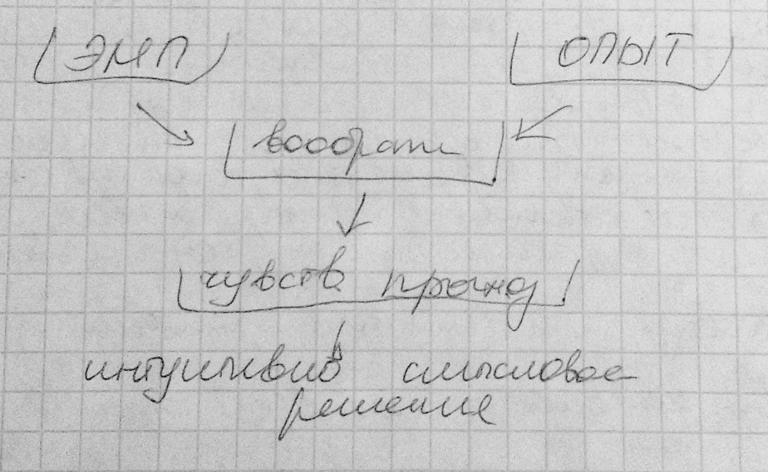 ЭМП ОПЫТ
воображ
чувств прогноз
интуитивно смысловое
решение